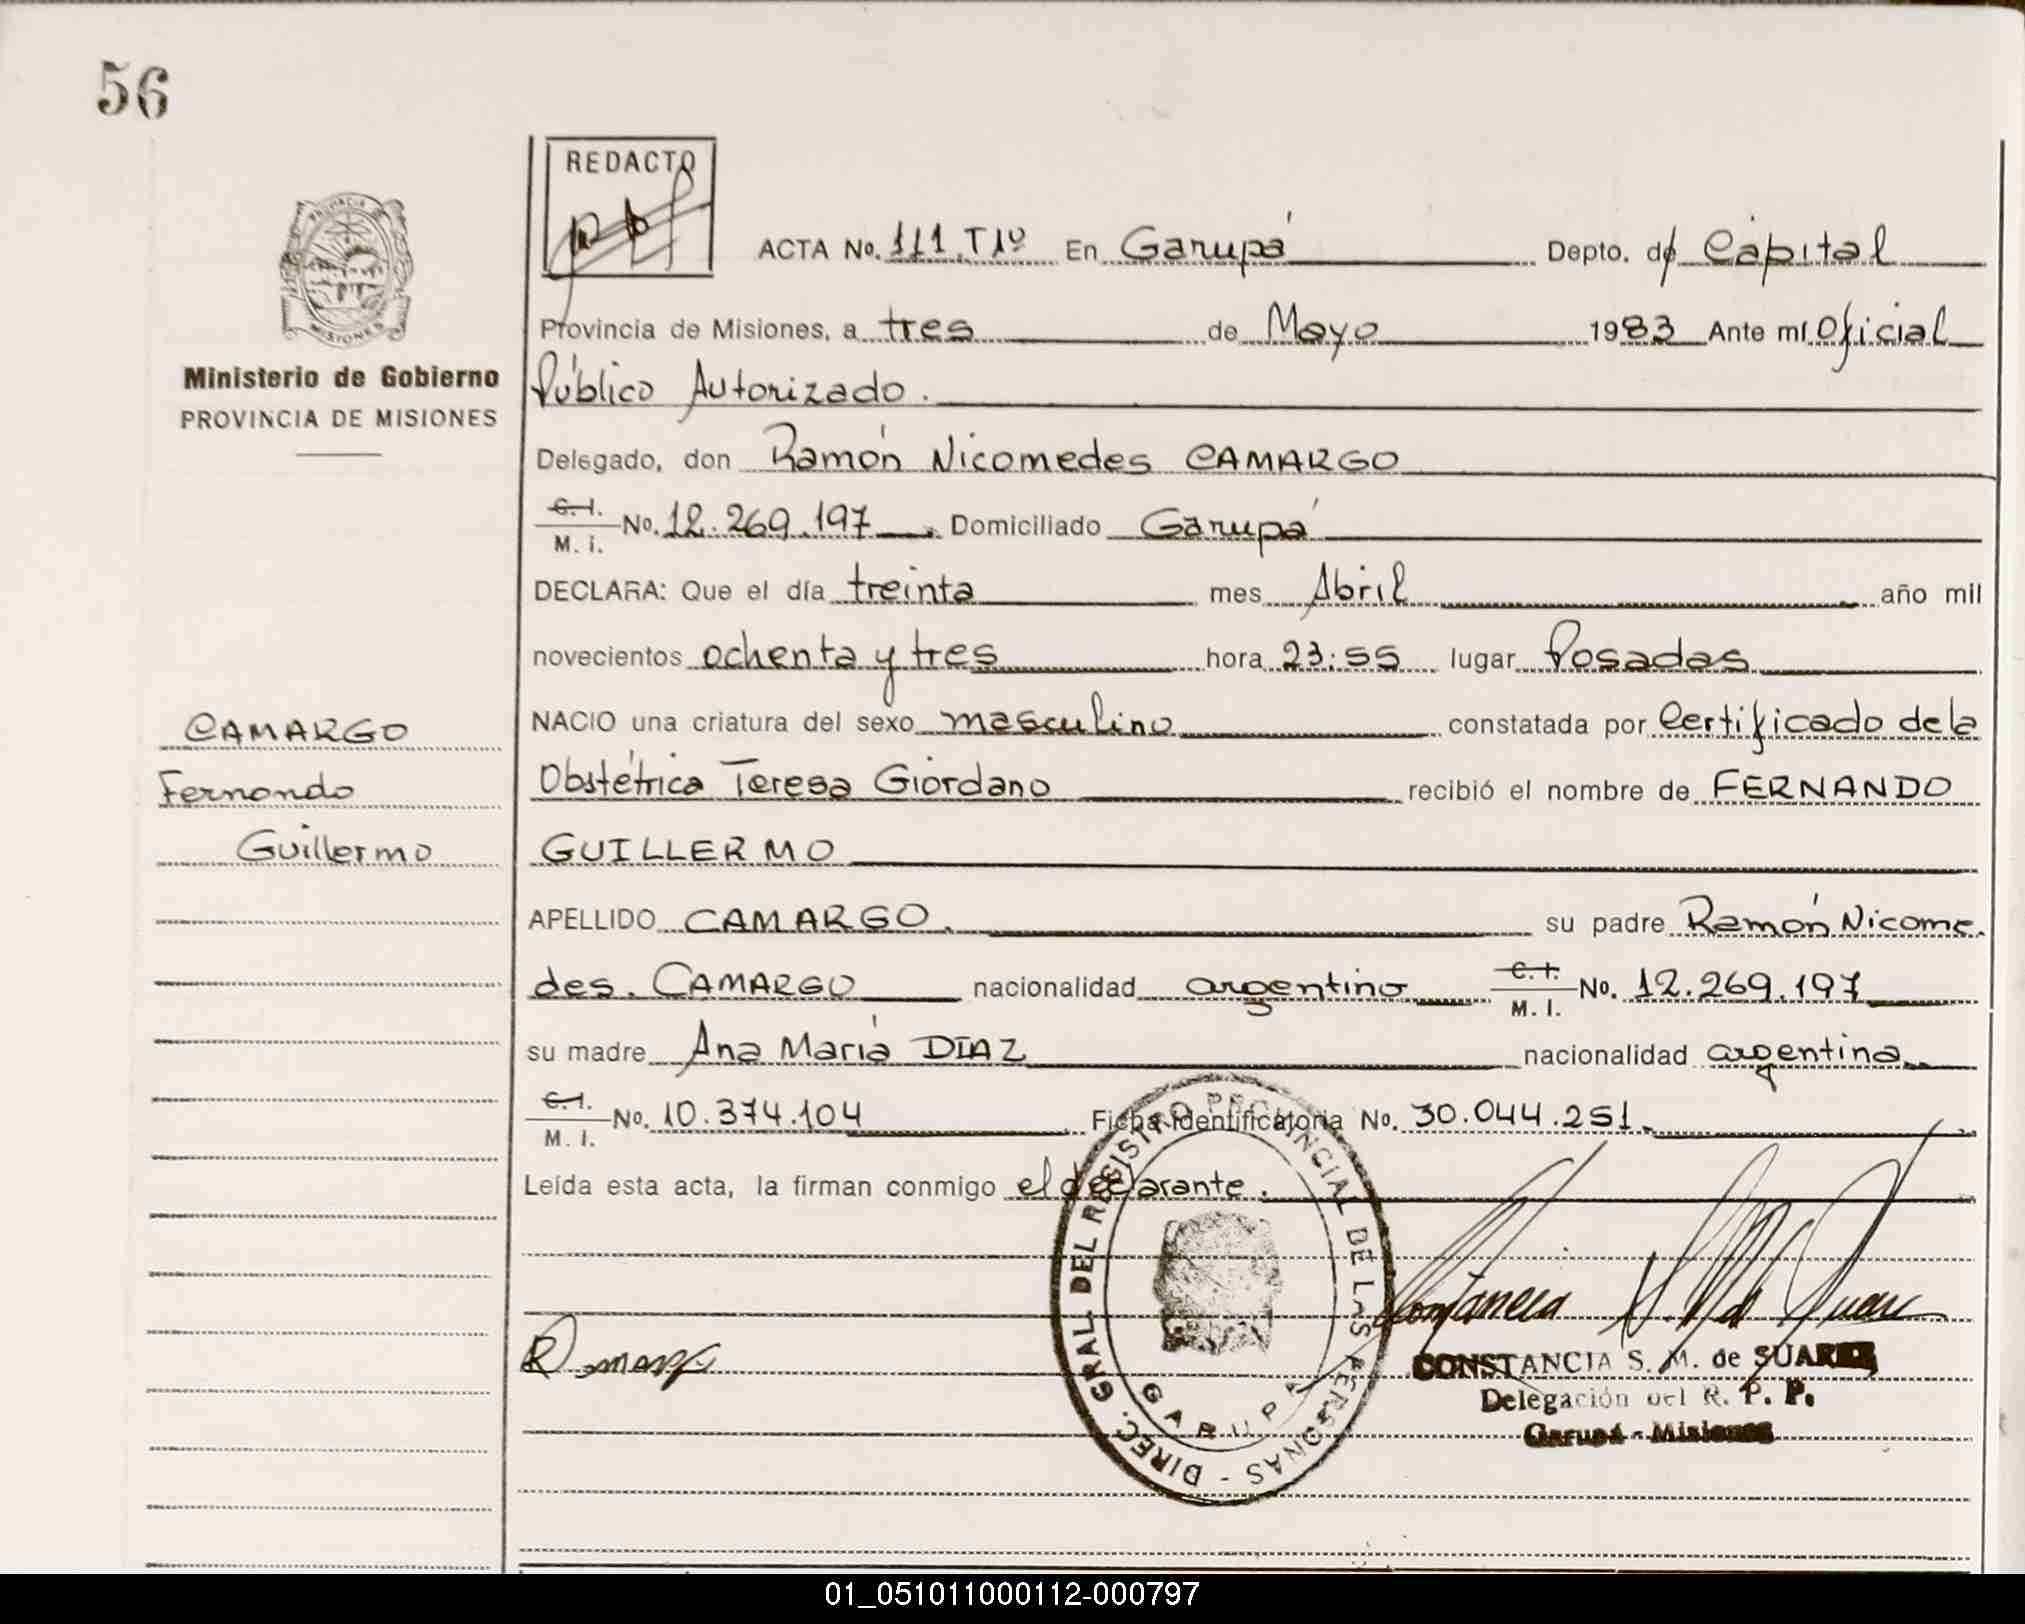 56
REDACTO
ACTA No. 111.T1º En Garupá Depto. de Capital
Provincia de Misiones, a tres de Mayo 1983 Ante mí Oficial
Público Autorizado.
PROVINCIA DE
MISIONES
Ministerio de Gobierno
PROVINCIA DE MISIONES
Delegado, don Ramón Nicomedes CAMARGO
C. I.
M. I. No. 12.269.197 . Domiciliado Garupá
DECLARA: Que el día treinta mes Abril año mil
novecientos ochenta y tres hora 23:55 lugar Posadas
CAMARGO
Fernando
Guillermo
NACIO una criatura del sexo masculino constatada por Certificado de la
Obstétrica Teresa Giordano recibió el nombre de FERNANDO
GUILLERMO
APELLIDO CAMARGO. su padre Ramón Nicome-
des. CAMARGO nacionalidad argentino C. I.
M. I. No. 12.269.197
su madre Ana María DIAZ nacionalidad argentina
C. I.
M. I. No. 10.374.104 Ficha Identificatoria No. 30.044.251.
Leída esta acta, la firman conmigo el declarante.
DIREC. GRAL DEL REGISTRO PROVINCIAL DE LAS PERSONAS -
GARUPA
CONSTANCIA S. M. de SUAREZ
Delegación del R. P. P.
Garupá - Misiones
01_051011000112-000797